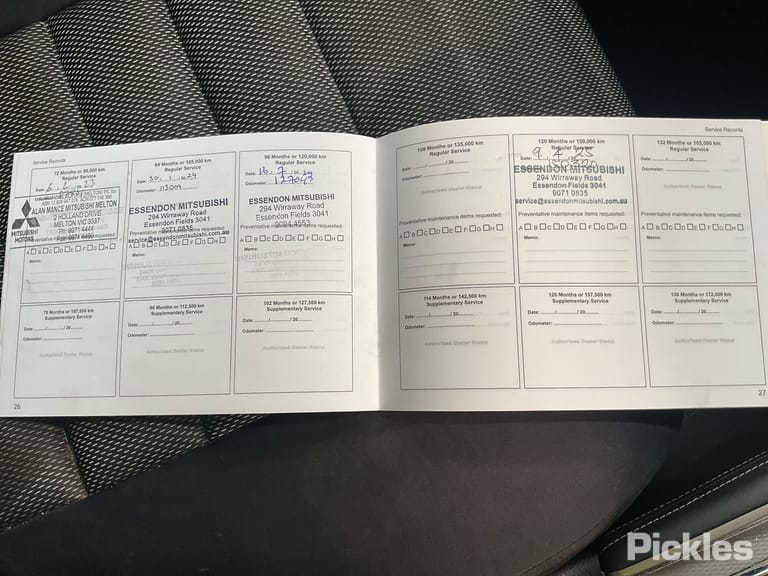 Service Records
72 Months or 90,000 km
Regular Service
Date: 6. 2. 2023
MITSUBISHI
MOTORS
ALAN MANCE MITSUBISHI MELTON
2 HOLLAND DRIVE
MELTON VIC 3337
Ph: 9971 4444
Preventative maintenance items requested:
A B C D E F G H
Memo:
84 Months or 105,000 km
Regular Service
Date: 30. 1. 2024
Odometer:
ESSENDON MITSUBISHI
294 Wirraway Road
Essendon Fields 3041
9071 0835
service@essendonmitsubishi.com.au
A B C D E F G H
Memo:
96 Months or 120,000 km
Regular Service
Date: 16. 7. 2024
Odometer: 127043
ESSENDON MITSUBISHI
294 Wirraway Road
Essendon Fields 3041
9094 4553
Preventative maintenance items requested:
A B C D E F G H
Memo:
Supplementary Service
Date: / /20
Odometer:
Authorised Dealer Stamp
Supplementary Service
Date: / /20
Odometer:
Authorised Dealer Stamp
102 Months or 127,500 km
Supplementary Service
Date: / /20
Odometer:
Authorised Dealer Stamp
26
Service Records
108 Months or 135,000 km
Regular Service
Date: / /20
Odometer:
Authorised Dealer Stamp
Preventative maintenance items requested:
A B C D E F G H
Memo:
120 Months or 150,000 km
Regular Service
9. 7. 25
ESSENDON MITSUBISHI
294 Wirraway Road
Essendon Fields 3041
9071 0835
service@essendonmitsubishi.com.au
Preventative maintenance items requested:
A B C D E F G H
Memo:
132 Months or 165,000 km
Regular Service
Date: / /20
Odometer:
Authorised Dealer Stamp
Preventative maintenance items requested:
A B C D E F G H
Memo:
114 Months or 142,500 km
Supplementary Service
Date: / /20
Odometer:
Authorised Dealer Stamp
126 Months or 157,500 km
Supplementary Service
Date: / /20
Odometer:
Authorised Dealer Stamp
138 Months or 172,500 km
Supplementary Service
Date: / /20
Odometer:
Authorised Dealer Stamp
27
Pickles